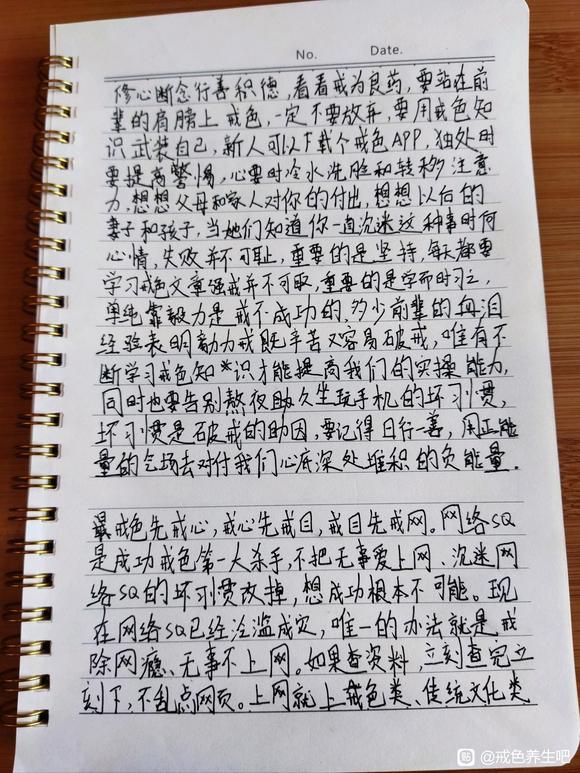 No. Date.
修心断念行善积德,看看戒为良药,要站在前
辈的肩膀上戒色,一定不要放弃,要用戒色知
识武装自己,新人可以下载个戒色APP,独处时
要提高警惕,心要时冷水洗脸和转移注意
力,想想父母和家人对你的付出,想想以后的
妻子和孩子,当她们知道你一直沉迷这种事时何
心情,失败并不可耻,重要的是坚持,每天都要
学习戒色文章强戒并不可取,重要的是学而时习之,
单纯靠毅力是戒不成功的,多少前辈的血泪
经验表明动力戒既辛苦又容易破戒,唯有不
断学习戒色知*识才能提高我们的实操能力,
同时也要告别熬夜久坐玩手机的坏习惯,
坏习惯是破戒的助因,要记得日行一善,用正能
量的气场去对付我们心底深处堆积的负能量.
戒色先戒心,戒心先戒目,戒目先戒网。网络SQ
是成功戒色第一大杀手,不把无事爱上网、沉迷网
络SQ的坏习惯改掉,想成功根本不可能。现
在网络SQ已经泛滥成灾,唯一的办法就是,戒
除网瘾、无事不上网。如果查资料,立刻查完立
刻下,不乱点网页。上网就上戒色类、传统文化类
贴 @戒色养生吧